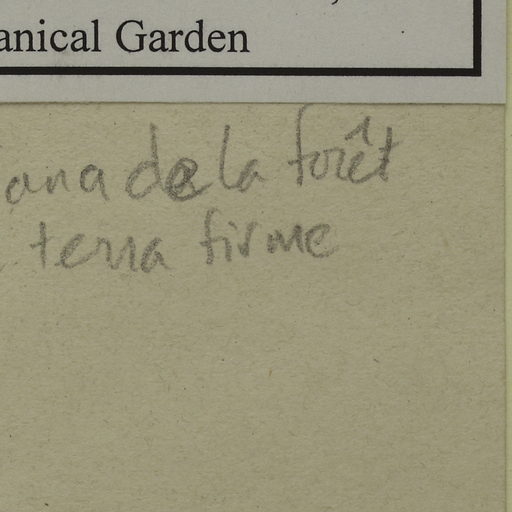 anical Garden
iana de la forêt
terra firme